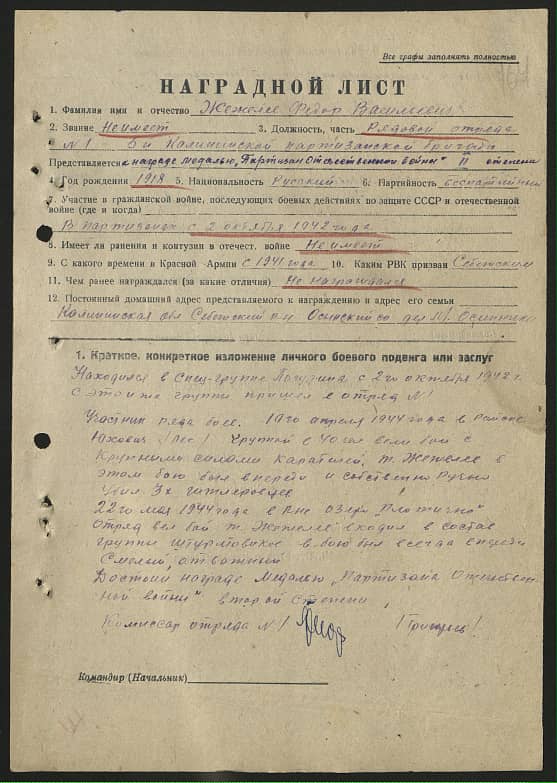 Все графы заполнять полностью
НАГРАДНОЙ ЛИСТ
1. Фамилия имя и отчество Жежеле Федор Васильевич
2. Звание Не имеет 3. Должность, часть Рядовой отряда
N 1 5й Калининской партизанской бригады
Представляется к награде медалью, "Партизан Отечественной войны" II степени
4. Год рождения 1918 5. Национальность Русский 6. Партийность беспартийный
7. Участие в гражданской войне, последующих боевых действиях по защите СССР и отечественной
войне (где и когда)
В партизанах с 2 октября 1942 года
8. Имеет ли ранения и контузии в отечест. войне Не имеет
9. С какого времени в Красной Армии с 1941 года 10. Каким РВК призван Себежским
11. Чем ранее награждался (за какие отличия) Не награждался
12. Постоянный домашний адрес представляемого к награждению и адрес его семьи
Калининская обл Себежский р-н Осынский со дер.
1. Краткое, конкретное изложение личного боевого подвига или заслуг
Находился в Спец-группе с 2го октября 1942 г.
с этой же группы пришел в отряд N 1
Участник ряда боев. апреля 1944 года в Районе
Группой с 40 чел вели бой с
Крупными силами Карателей, т. Жежеле в
этом бою был впереди и собственно Ручно
Убил 3х гитлеровцев
22го мая 1944 года в р-не озера
Отряд вел бой т. Жежеле входил в состав
группы в бою был всегда впереди
Смелый отважный
Достоин награде Медалью "Партизан Отечествен-
ной войны" второй степени
Комиссар отряда N 1
Командир (Начальник)